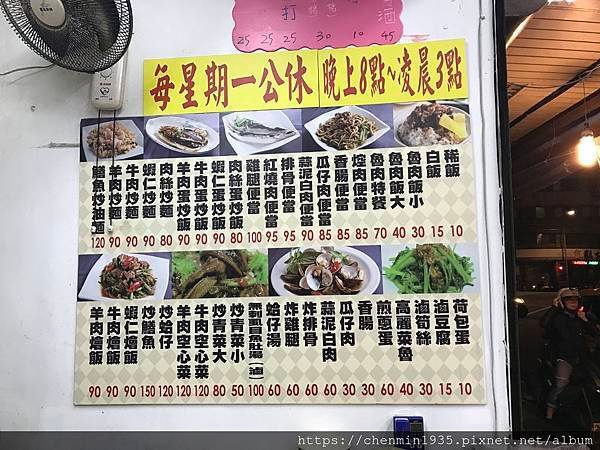 打
酒
25 25 25 30 10 45
每星期一公休 晚上8點~凌晨3點
稀飯 10
白飯 15
魯肉飯小 30
魯肉飯大 40
魯肉特餐 70
焢肉便當 85
香腸便當 85
瓜仔肉便當 85
蒜泥白肉便當 90
排骨便當 95
紅燒肉便當 95
雞腿便當 100
肉絲蛋炒飯 80
蝦仁蛋炒飯 90
牛肉蛋炒飯 90
羊肉蛋炒飯 90
肉絲炒麵 80
蝦仁炒麵 90
牛肉炒麵 90
羊肉炒麵 90
鱔魚炒油麵 120
荷包蛋 10
滷豆腐 15
滷筍絲 30
高麗菜魯 40
煎蔥蛋 60
香腸 30
瓜仔肉 30
蒜泥白肉 60
炸排骨 60
炸雞腿 60
蛤仔湯 60
無刺虱目魚肚湯(滷) 100
炒青菜小 50
炒青菜大 80
牛肉空心菜 120
羊肉空心菜 120
炒蛤仔 120
炒鱔魚 150
蝦仁燴飯 90
牛肉燴飯 90
羊肉燴飯 90
https://chenmin1935.pixnet.net/album